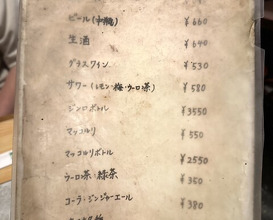 ビール(中瓶) ¥660
生酒 ¥640
グラスワイン ¥530
サワー(レモン・梅・ウーロン茶) ¥580
ジンロボトル ¥3550
マッコルリ ¥550
マッコルリボトル ¥2550
ウーロン茶・緑茶 ¥350
コーラ・ジンジャーエール ¥380